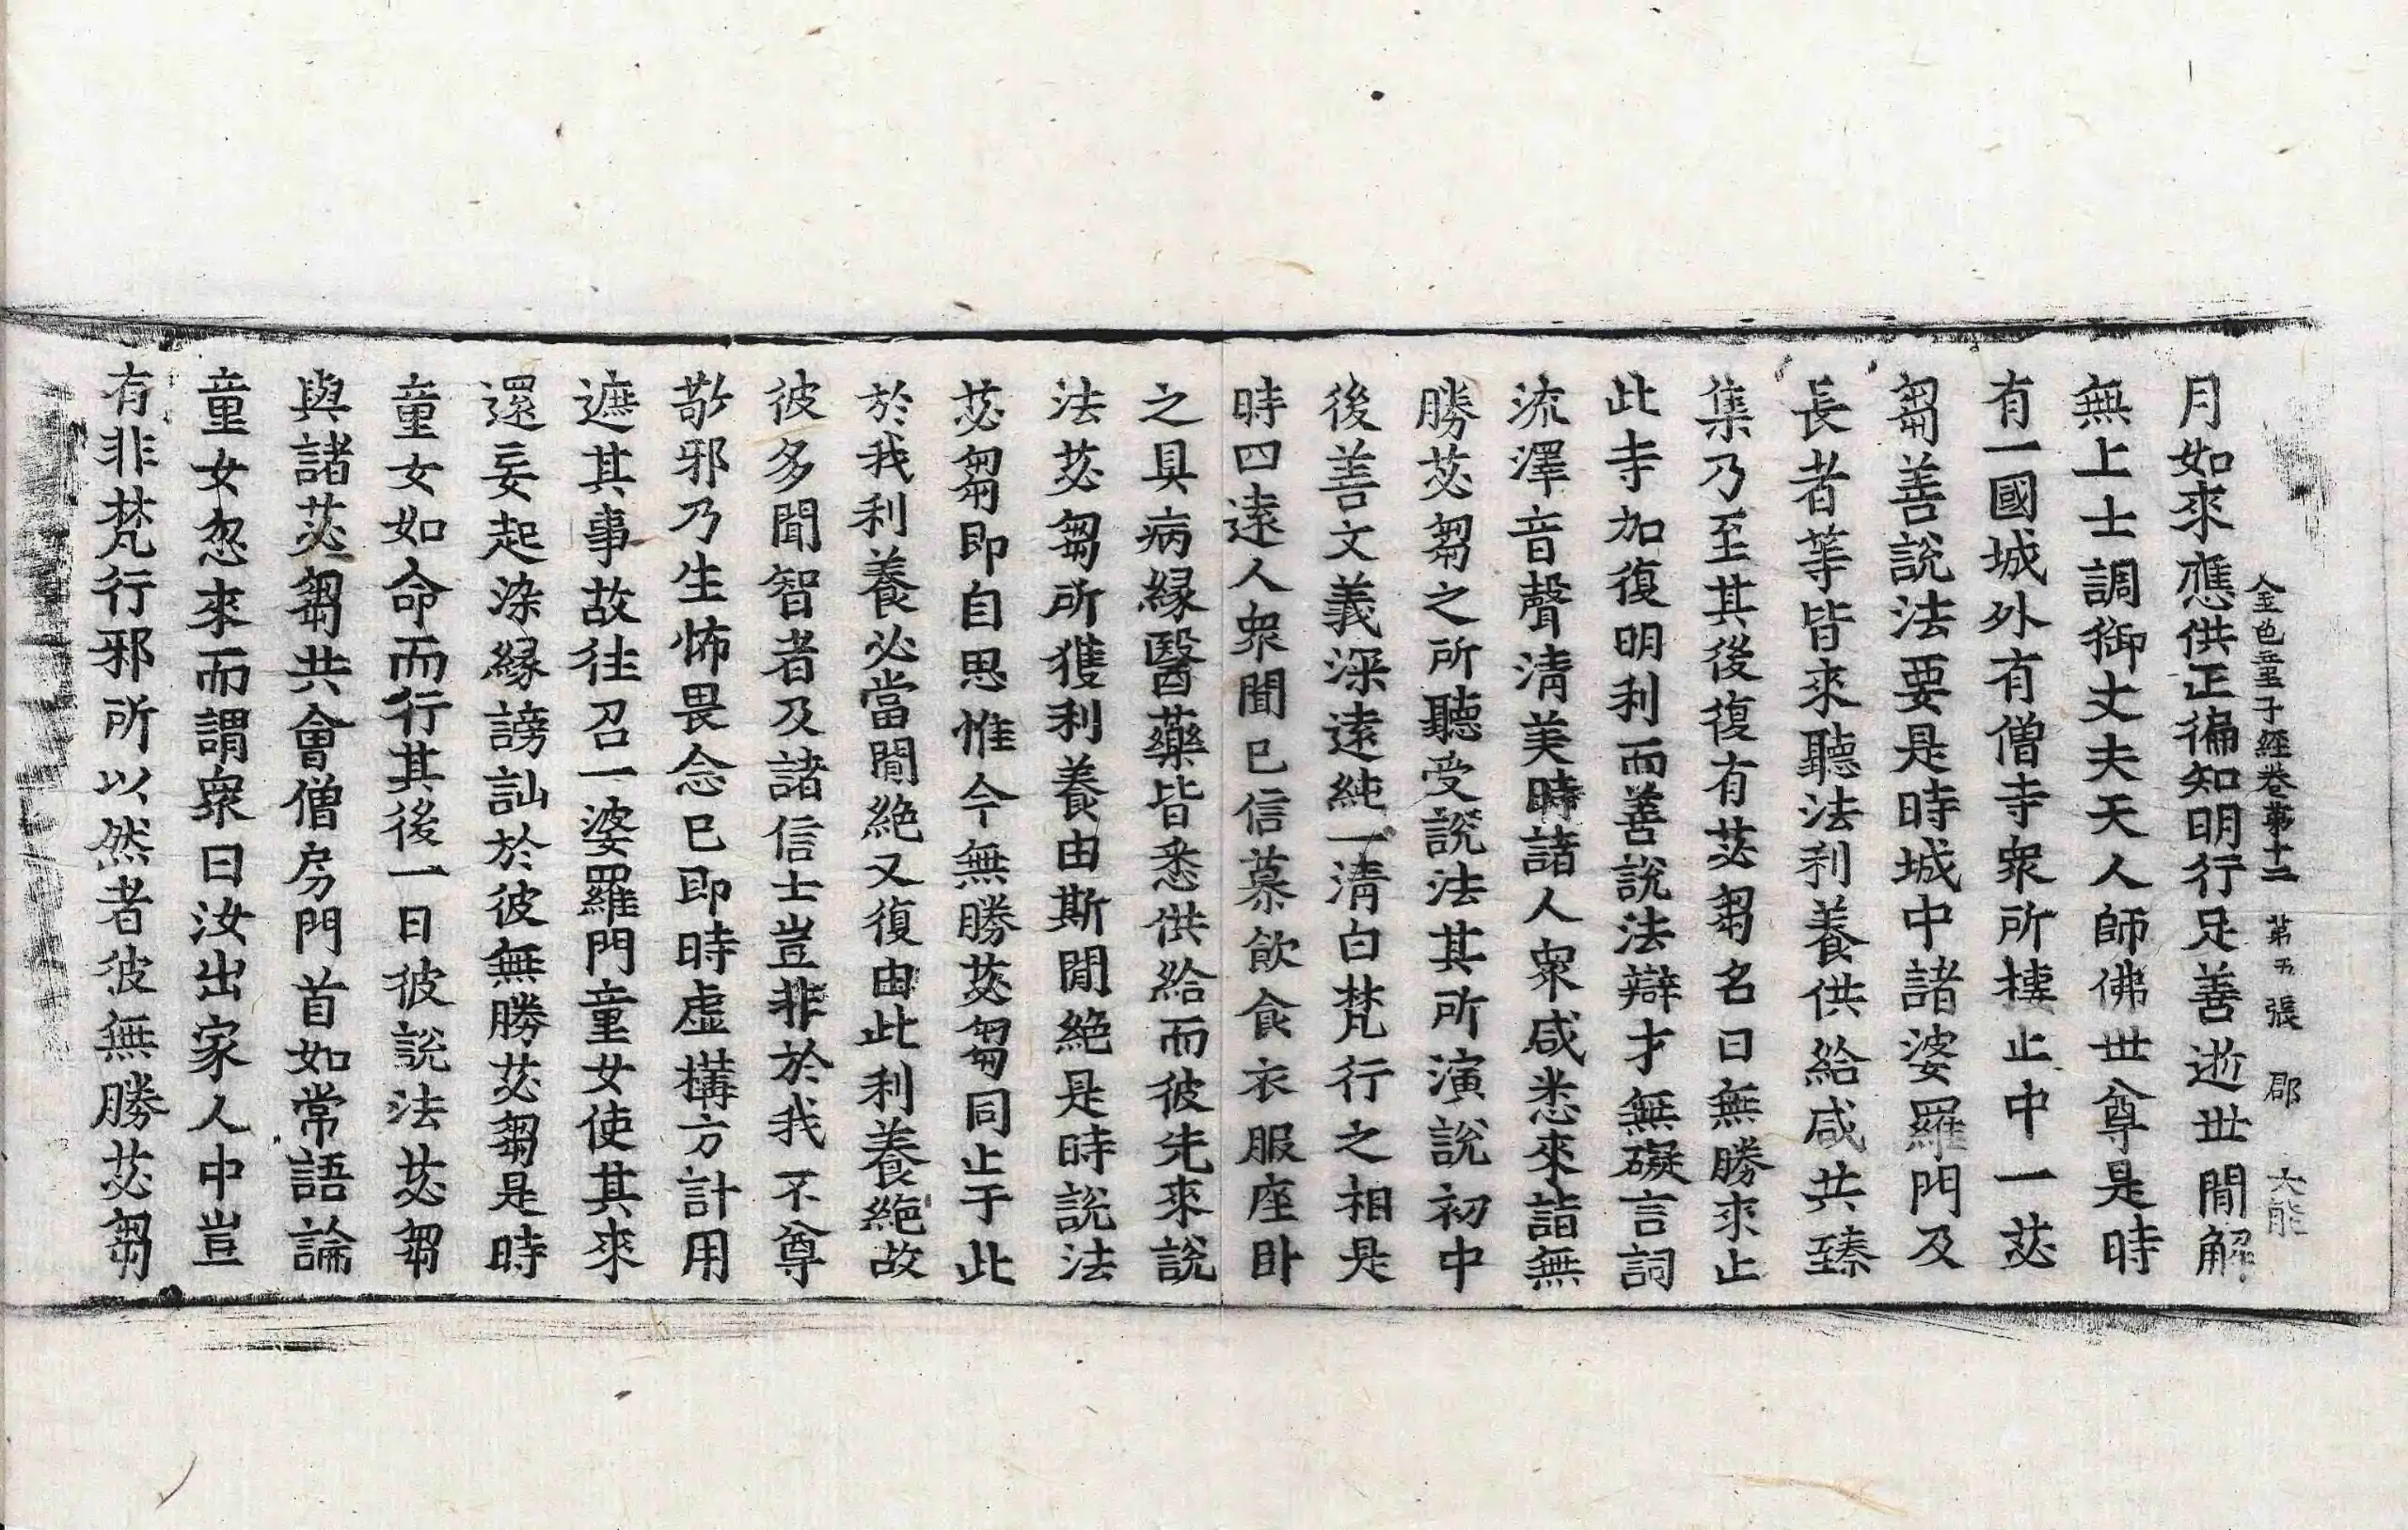 金色童子經卷第十二 第五張 郡 大能
月如來應供正徧知明行足善逝世間解
無上士調御丈夫天人師佛世尊是時
有一國城外有僧寺衆所棲止中一苾
芻善說法要是時城中諸婆羅門及
長者等皆來聽法利養供給咸共臻
集乃至其後復有苾芻名曰無勝來止
此寺加復明利而善說法辯才無礙言詞
流澤音聲清美時諸人衆咸悉來詣無
勝苾芻之所聽受說法其所演說初中
後善文義深遠純一清白梵行之相是
時四遠人衆聞已信慕飲食衣服座臥
之具病緣醫藥皆悉供給而彼先來說
法苾芻所獲利養由斯間絶是時說法
苾芻即自思惟今無勝苾芻同止于此
於我利養必當間絶又復由此利養絶故
彼多聞智者及諸信士豈非於我不尊
敬邪乃生怖畏念已即時虛搆方計用
遮其事故往召一婆羅門童女使其來
還妄起染緣謗訕於彼無勝苾芻是時
童女如命而行其後一日彼說法苾芻
與諸苾芻共會僧房門首如常語論
童女忽來而謂衆曰汝出家人中豈
有非梵行邪所以然者彼無勝苾芻